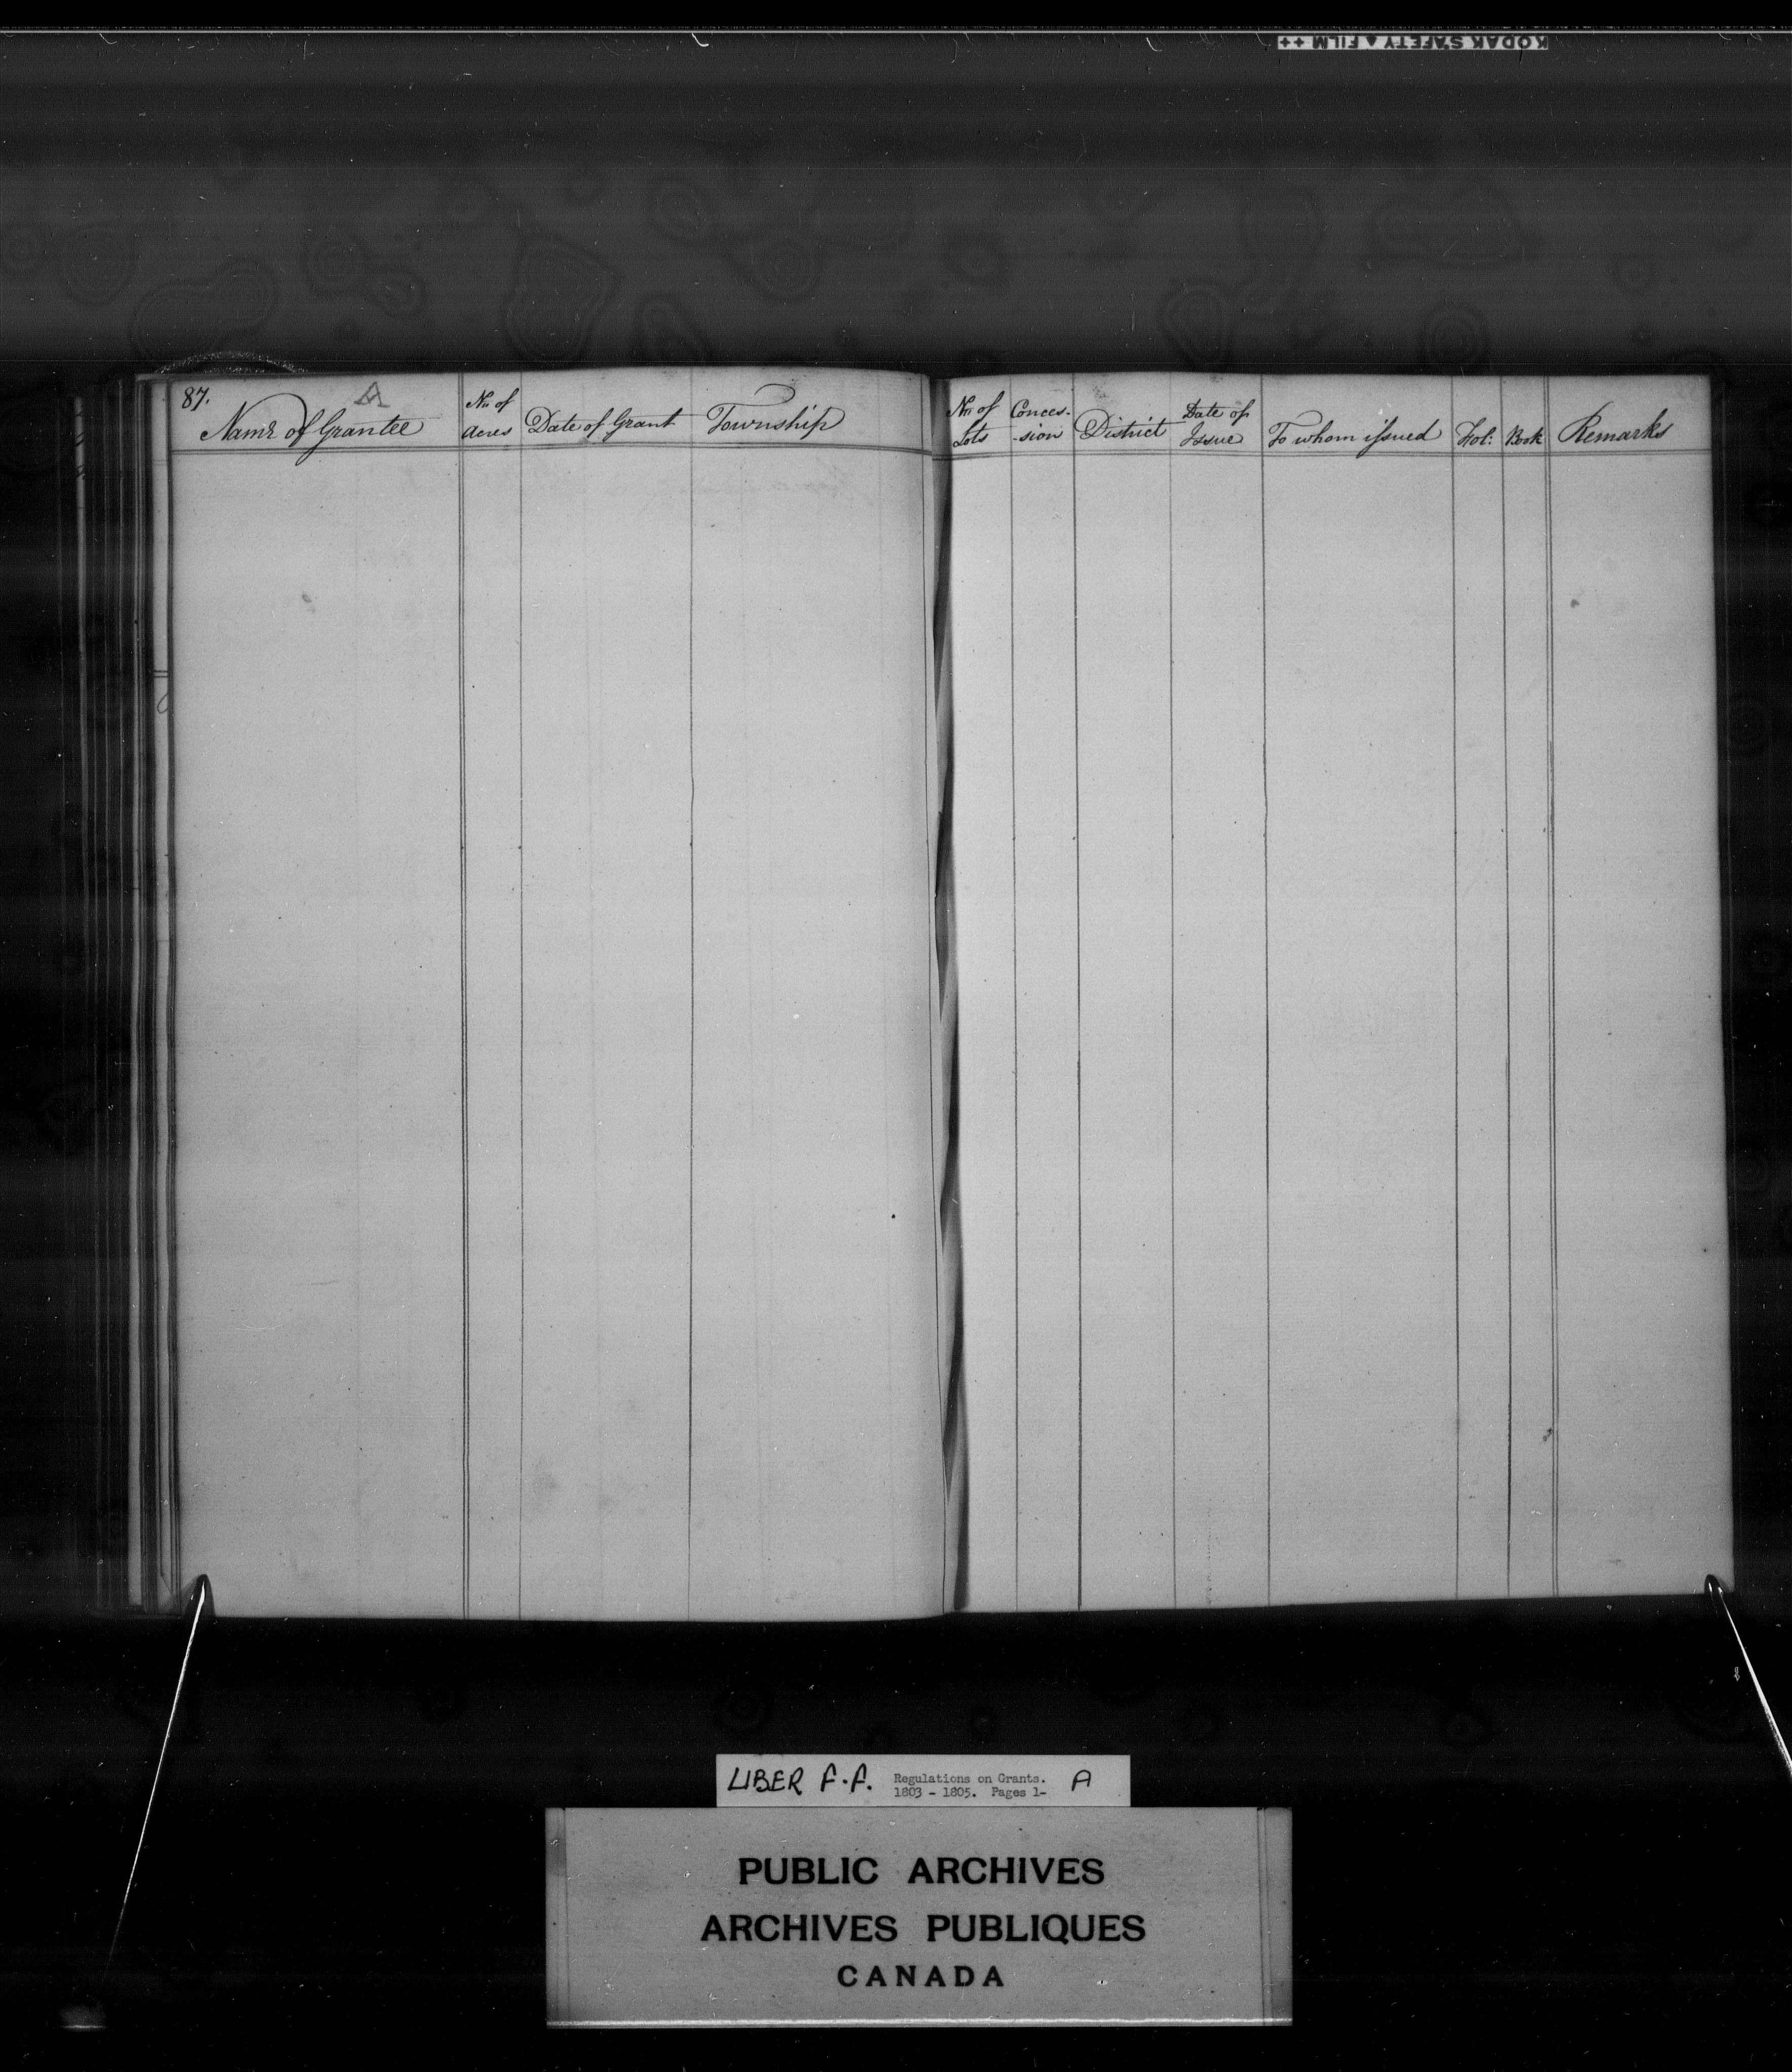 KODAK SAFETY ▲ FILM ++
87.
A
Name of Grantee
No. of
Acres
Date of Grant
Township
No. of
Lots
Conces-
-sion
District
Date of
Issue
To whom issued
Fol:
Book
Remarks
LIBER F.F. Regulations on Grants. A
1803 - 1805. Pages 1-
PUBLIC ARCHIVES
ARCHIVES PUBLIQUES
CANADA